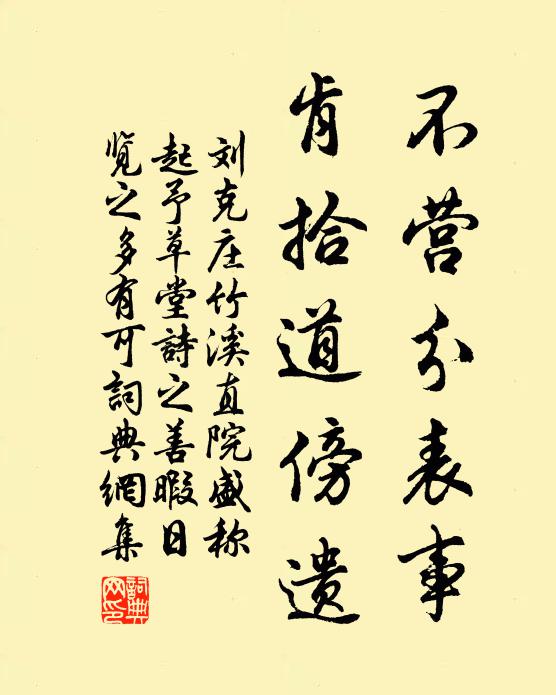 不营分表事
肯拾道傍遗
刘克庄竹溪直院盛称
起予草堂詩之善暇日
览之多有可詞典網集
詞典網印